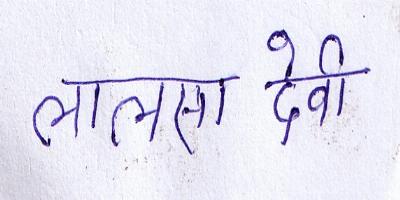 लालसा देवी